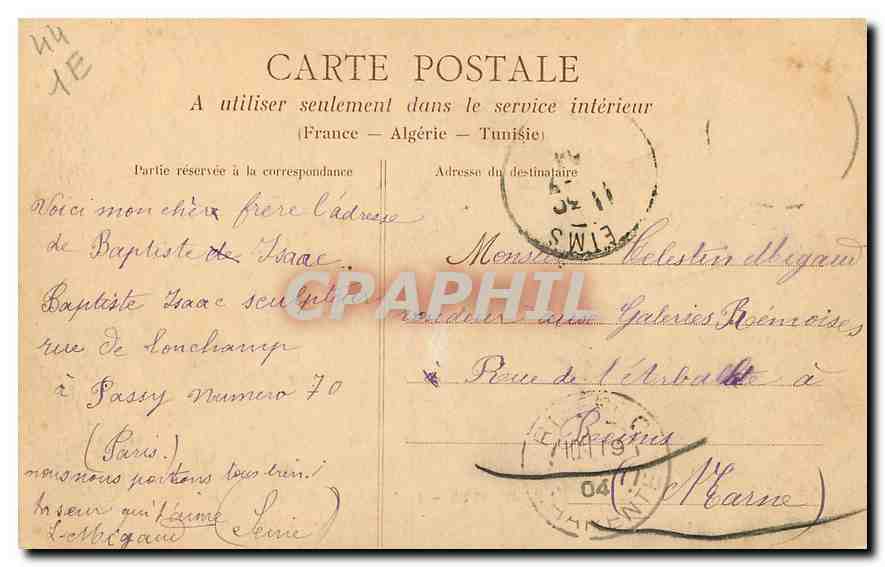 44
1E
CARTE POSTALE
A utiliser seulement dans le service intérieur
(France — Algérie — Tunisie)
Partie réservée à la correspondance
Adresse du destinataire
Voici mon chèr frère l'adresse
de Baptiste de Isaac
Baptiste Isaac sculpteur
rue de Lonchamp
à Passy numero 70
(Paris.)
nous nous portions tous bien.
ta seur qui t'aime (Seine)
L. Mégaud
Monsieur Celestin Mégaud
vendeur aux Galeries Rémoises
à Rue de l'Arbalète à
Reims
(Marne)
04
CHARENTE
CPAPHIL